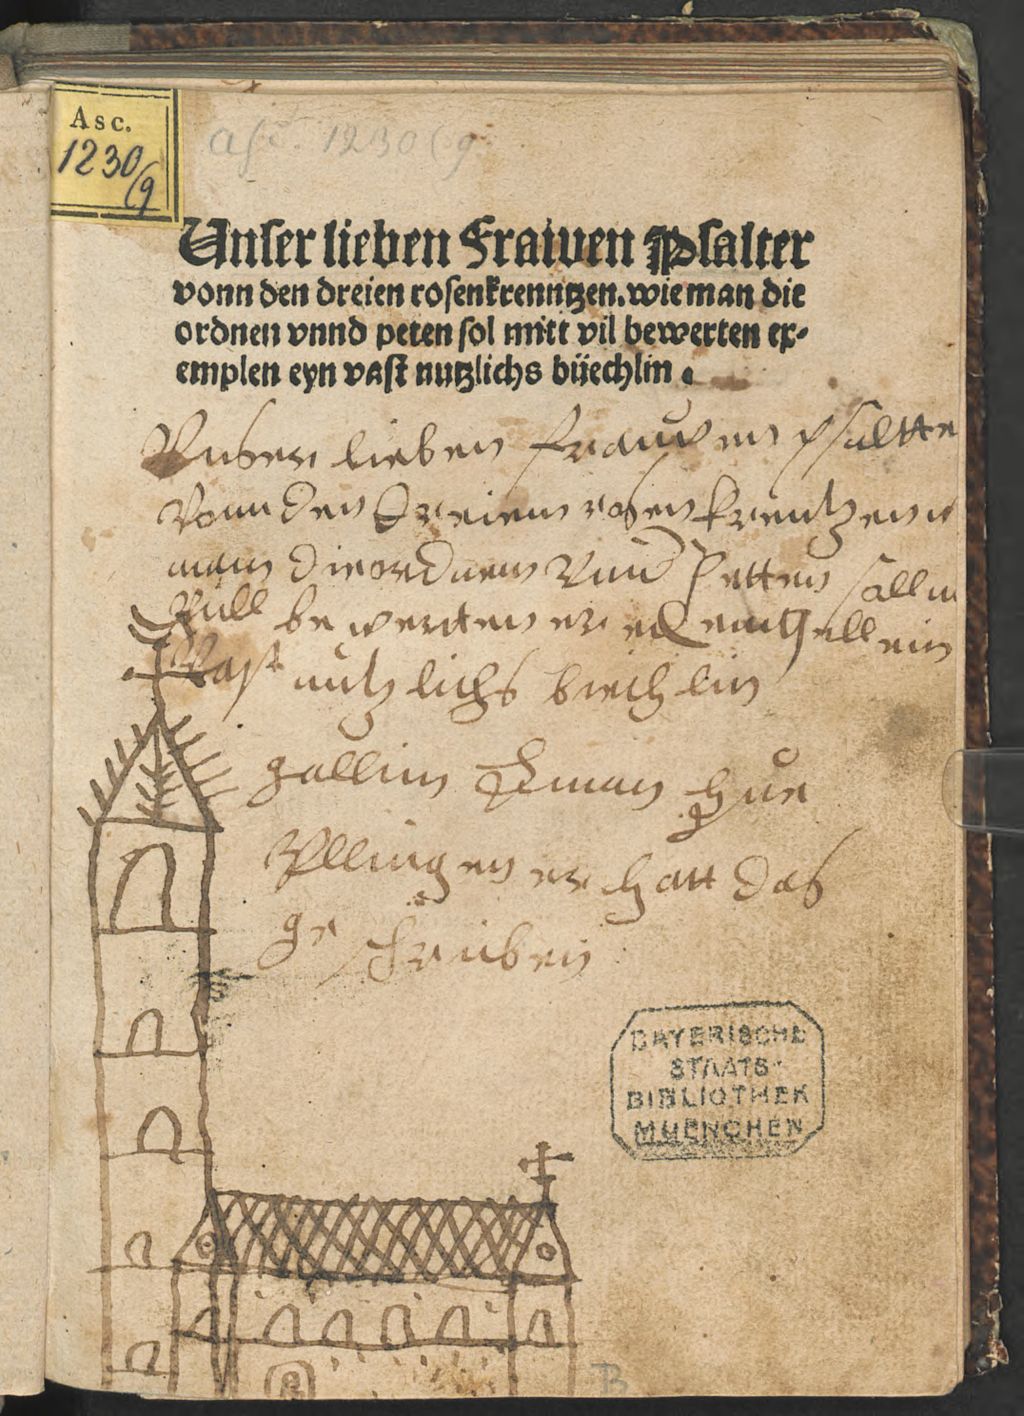 Asc.
1230/9
Asc. 1230(9
Unser lieben Frawen Psalter
vonn den dreien rosenkrenntzen. wie man die
ordnen vnnd peten sol mitt vil bewerten ex-
emplen eyn vast nutzlichs büechlin.
Vnser lieben frauwen psaltte
Vonn den dreien rosenkrentzen
man die ordnen Vnd petten soll
Vill bewerten ein
Vast nutzlichs biechlin
gallim
er hatt das
geschriben
BAYERISCHE
STAATS-
BIBLIOTHEK
MUENCHEN
B